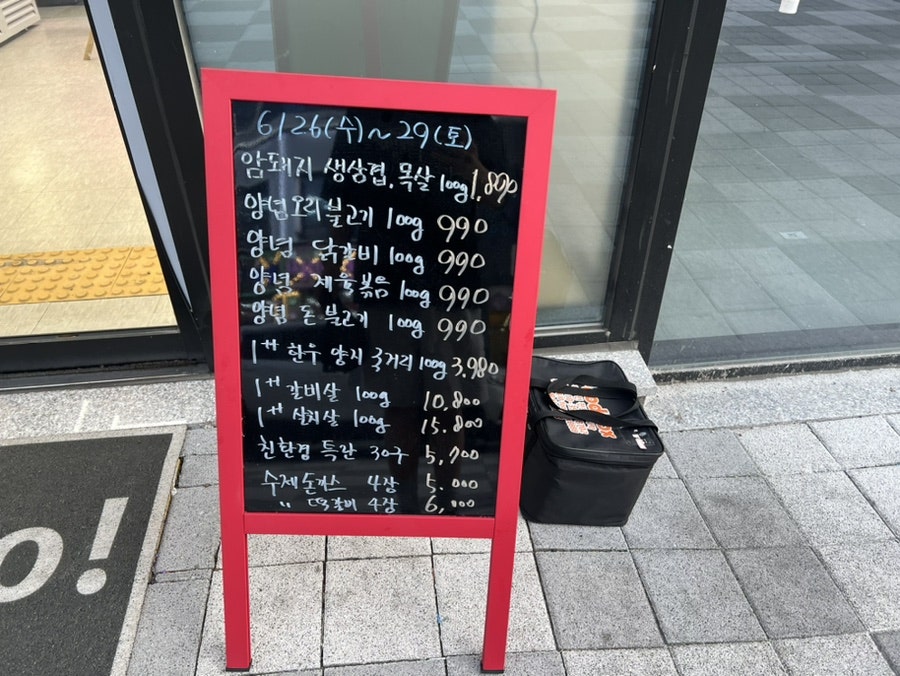 6/26(수)~29(토)
암돼지 생삼겹, 목살 100g 1,890
양념오리불고기 100g 990
양념 닭갈비 100g 990
양념 제육볶음 100g 990
양념 돈불고기 100g 990
1++ 한우 양지 국거리 100g 3,980
1++ 갈비살 100g 10,800
1++ 살치살 100g 15.800
친환경 특란 30구 5,700
수제돈까스 4장 5.000
〃 떡갈비 4장 6,000
o!